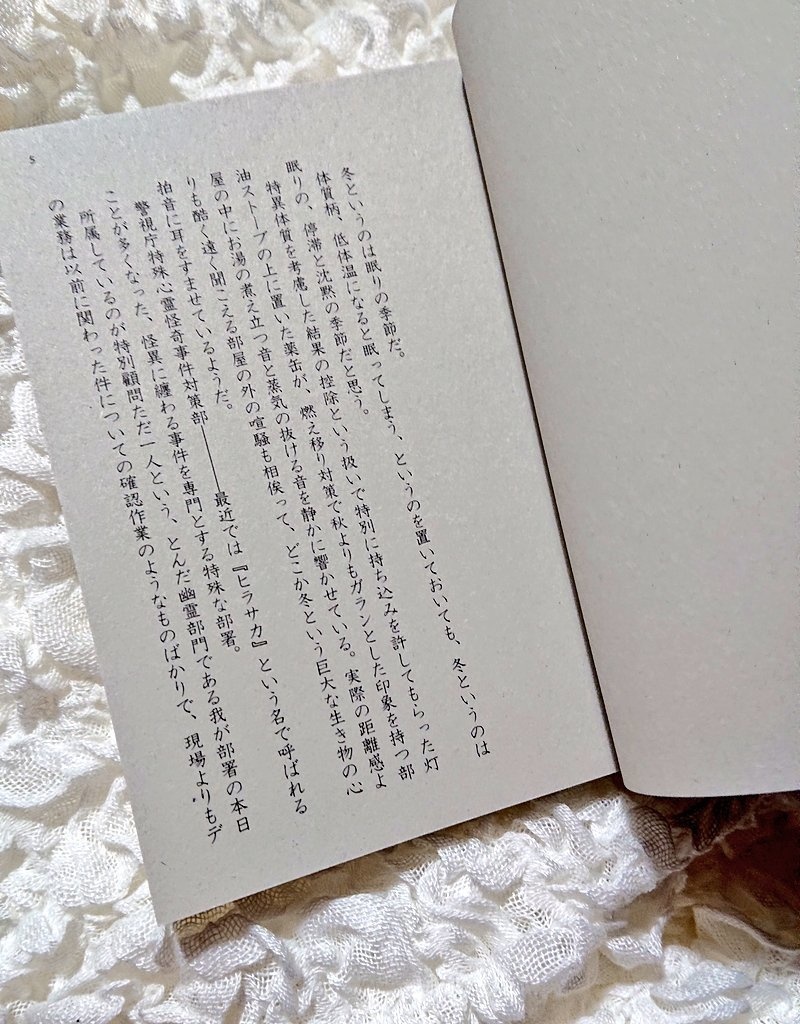 冬というのは眠りの季節だ。
体質柄、低体温になると眠ってしまう、というのを置いておいても、冬というのは
眠りの、停滞と沈黙の季節だと思う。
特異体質を考慮した結果の控除という扱いで特別に持ち込みを許してもらった灯
油ストーブの上に置いた薬缶が、燃え移り対策で秋よりもガランとした印象を持つ部
屋の中にお湯の煮え立つ音と蒸気の抜ける音を静かに響かせている。実際の距離感よ
りも酷く遠く聞こえる部屋の外の喧騒も相俟って、どこか冬という巨大な生き物の心
拍音に耳をすませているようだ。
警視庁特殊心霊怪奇事件対策部――最近では『ヒラサカ』という名で呼ばれる
ことが多くなった、怪異に纏わる事件を専門とする特殊な部署。
所属しているのが特別顧問ただ一人という、とんだ幽霊部門である我が部署の本日
の業務は以前に関わった件についての確認作業のようなものばかりで、現場よりもデ
5